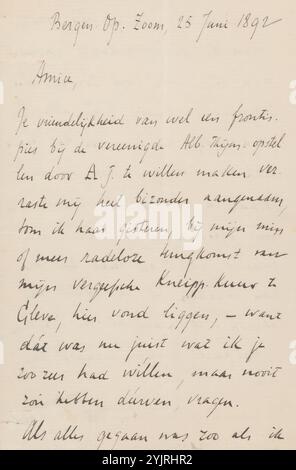 Bergen Op. Zoom, 25 Juni 1892
Amice,
Je vriendelijkheid van wel een frontis-
pies bij de vereenigde Alb. Thijm-opstel
len door A. J. te willen maken ver
raste mij heel bizonder aangenaam,
toen ik haar gisteren, bij mijn min
of meer radeloze terugkomst van
mijn vergeefsche Kneipp-kuur te
Cleve, hier vond liggen, – want
dát was nu juist wat ik je
zoo zeer had willen, maar nooit
zou hebben durven, vragen.
Als alles gegaan was zoo als ik
alamy
Image ID: 2YJRHR2
www.alamy.com